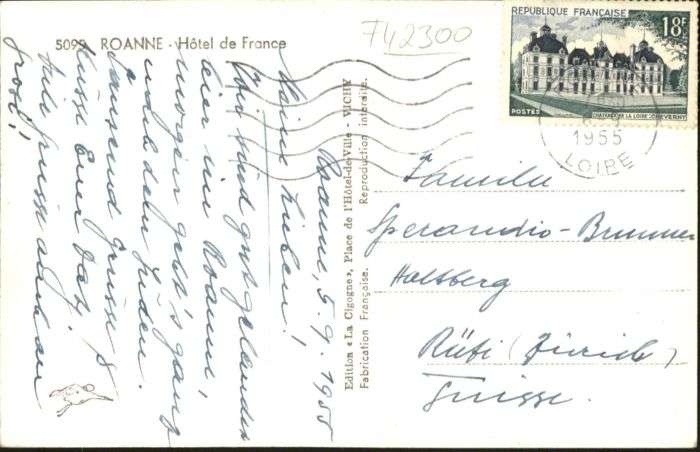 5099 ROANNE - Hôtel de France
F42300
REPUBLIQUE FRANÇAISE
18F
POSTES
CHATEAUX DE LA LOIRE CHEVERNY
1955
LOIRE
Edition «La Cigogne», Place de l'Hôtel-de-Ville - VICHY
Fabrication Française. Reproduction interdite.
Roanne, 5.9.1955
Meine Lieben!
sind gut gelandet
hier in Roanne,
morgen geht's ganz
nach dem Süden.
Tausend Grüsse &
Küsse Euer
Familie
Sperandio-Brunner
Haltberg
Rüti (Zürich)
Suisse.